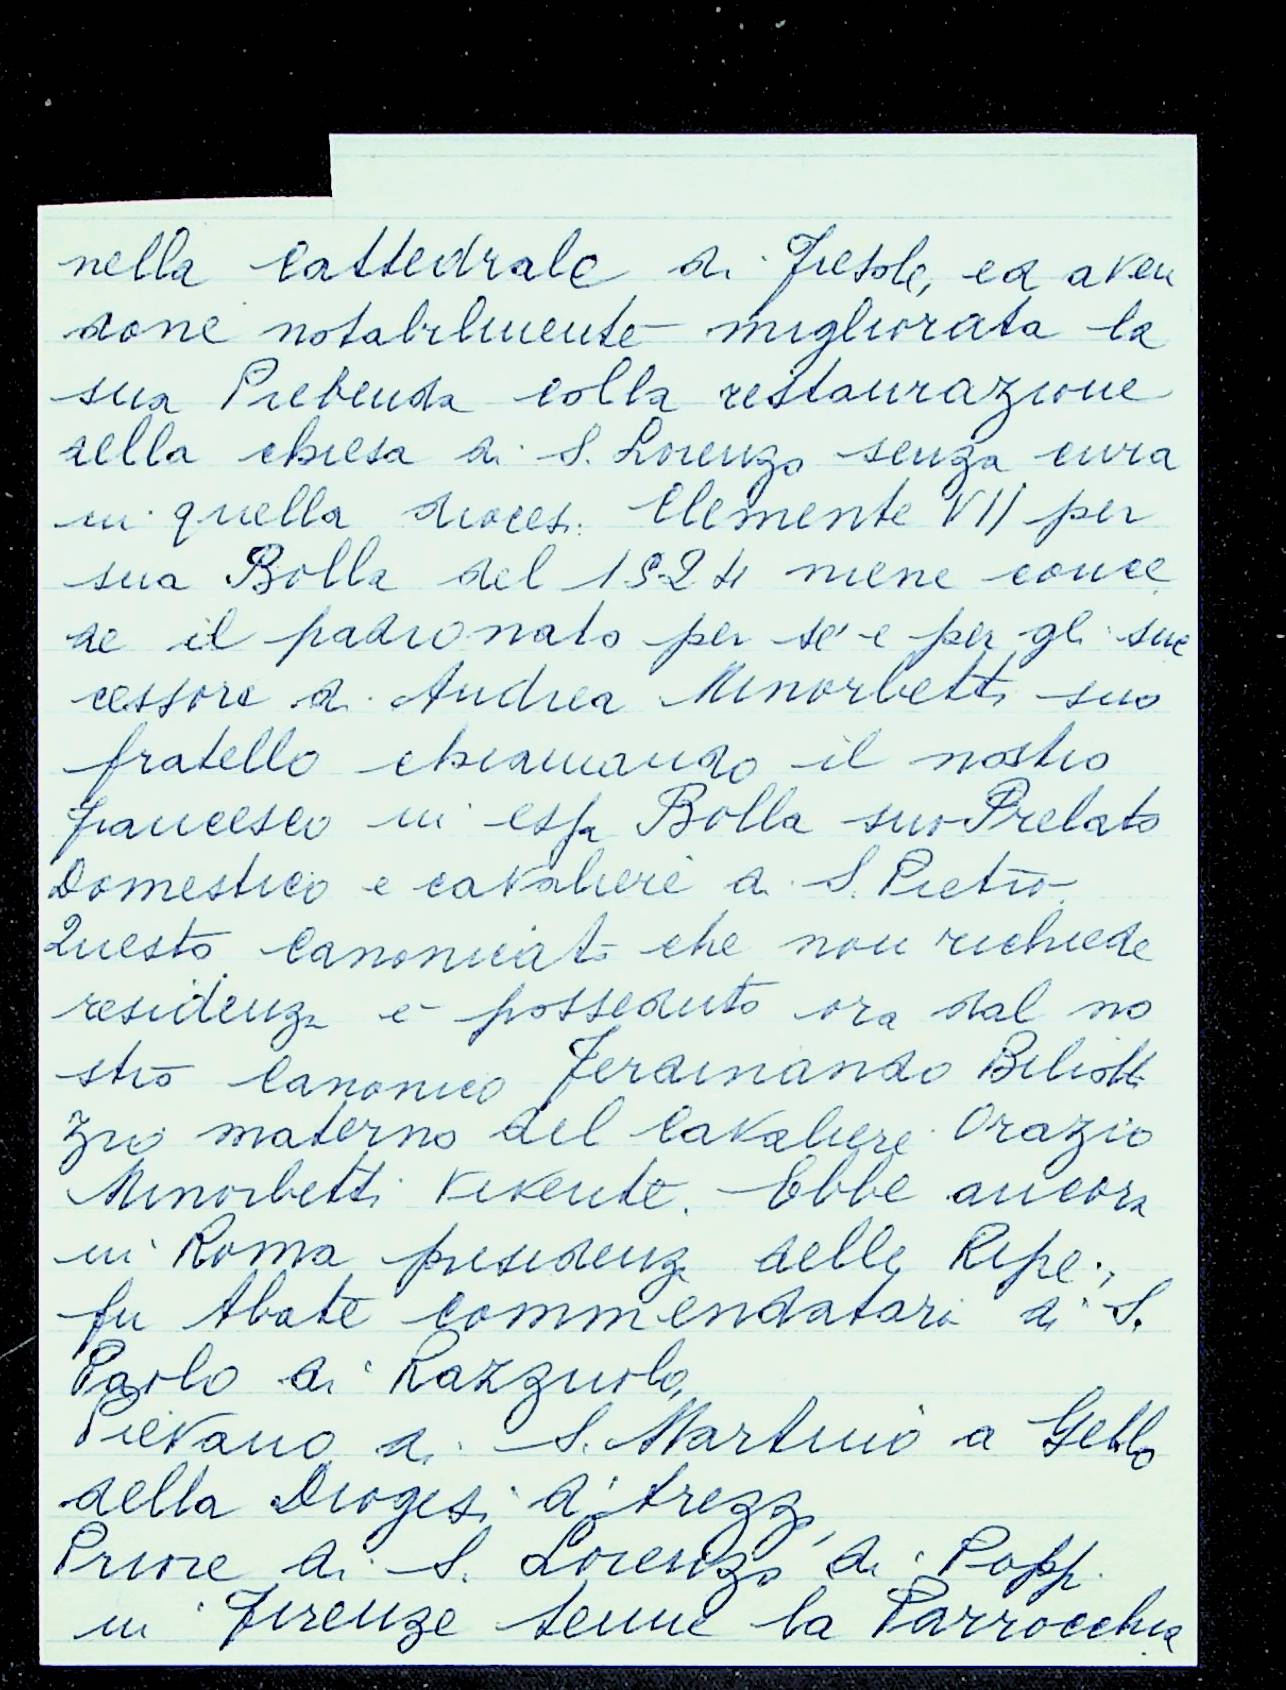 nella Cattedrale di Fiesole, ed aven
done notabilmente migliorata la
sua Prebenda colla restaurazione
della chiesa di S. Lorenzo senza cura
in quella diocesi. Clemente VII per
sua Bolla del 1524 niene conce
de il padronato per se' e per gli suc
cessore di Andrea Minorbetti suo
fratello chiamando il nostro
Francesco in essa Bolla suo Prelato
Domestico e cavaliere di S. Pietro.
Questo Canonicato che non richiede
residenza e posseduto ora dal no
stro Canonico Ferdinando Biliotti
zio materno del Cavaliere Orazio
Minorbetti vivente. Ebbe ancora
in Roma presidenza delle Ripe;
fu Abate commendatario di S.
Paolo di Razzuolo,
Pievano di S. Martino a Gello
della Diogesi di Arezzo,
Priore di S. Lorenzo di Poppi
in Firenze tenne la Parrocchia